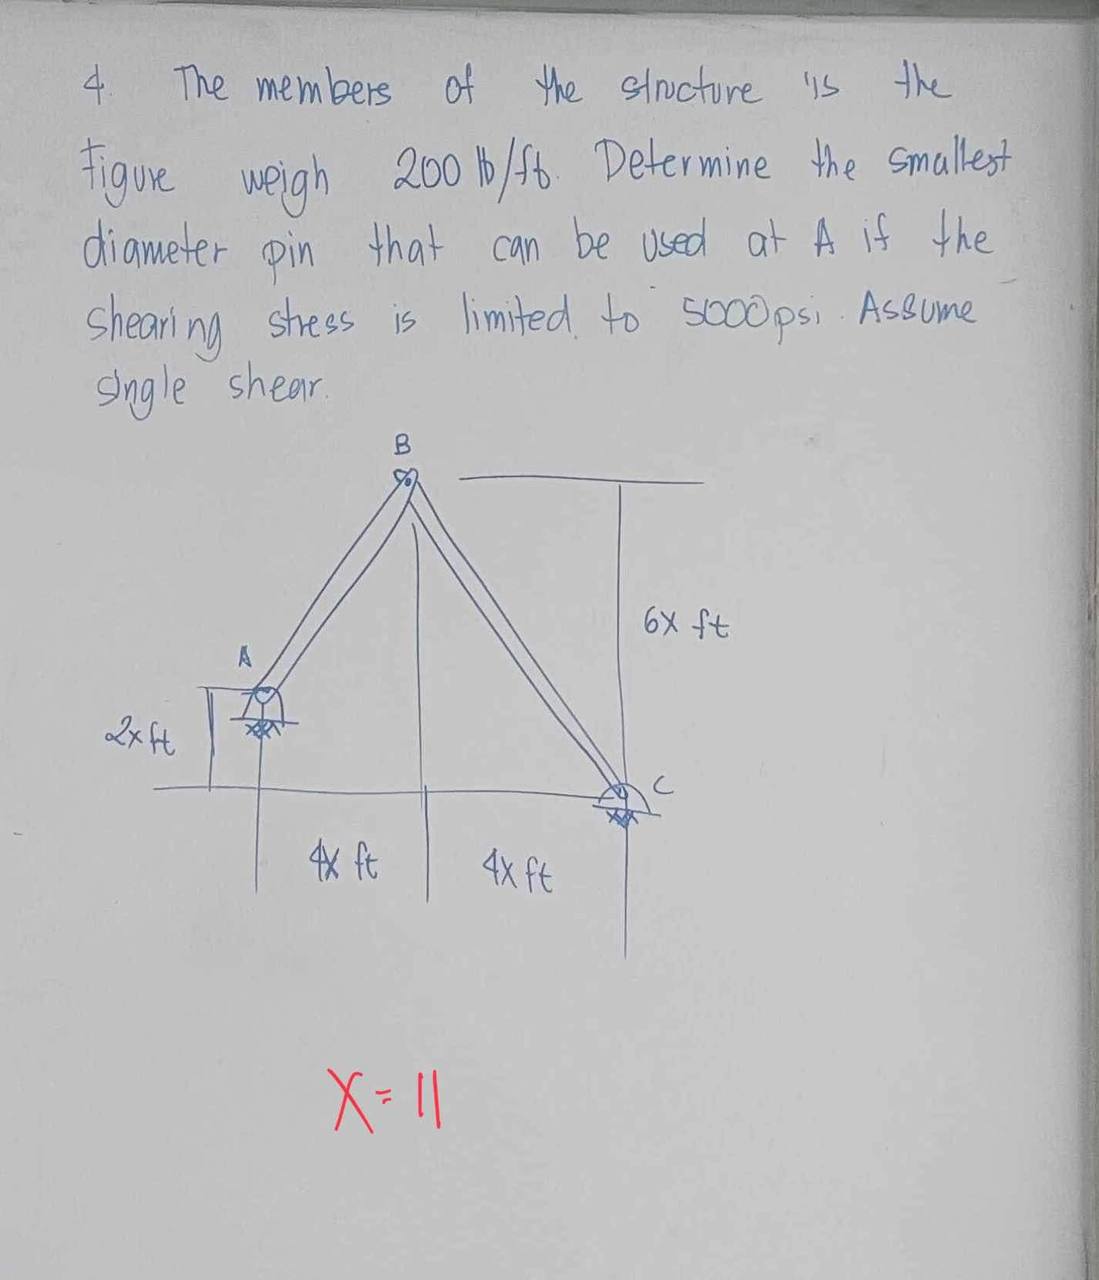 4. The members of the structure is the
figure weigh 200 lb/ft. Determine the smallest
diameter pin that can be used at A if the
shearing stress is limited. to 5000psi. Assume
single shear.
B
6x ft
A
2x ft
C
4x ft 4x ft
X = 11